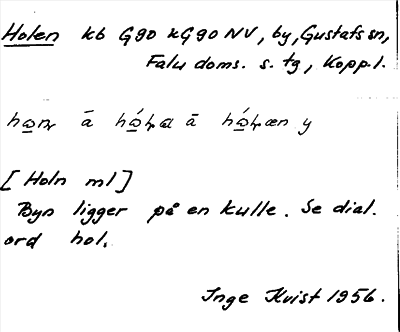 Holen kb G90 kG90 NV, by, Gustafs sn,
Falu doms. s. tg, Kopp.l.
[Holn ml]
Byn ligger på en kulle. Se dial.
ord hol.
Inge Kvist 1956.